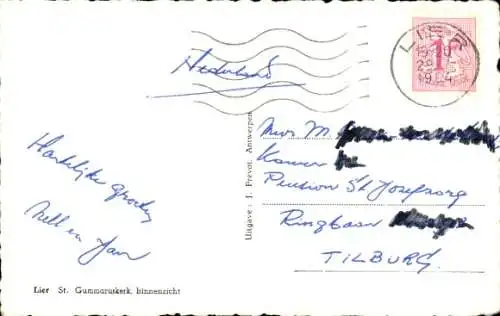 Nederland
LIER
1F
Hartelijke groeten
Nell en Jan
Uitgave: J. Prevot, Antwerpen
Mevr M
Kamer
Pension St Josefzorg
Ringbaan
TILBURG.
Lier St. Gummaruskerk, binnenzicht